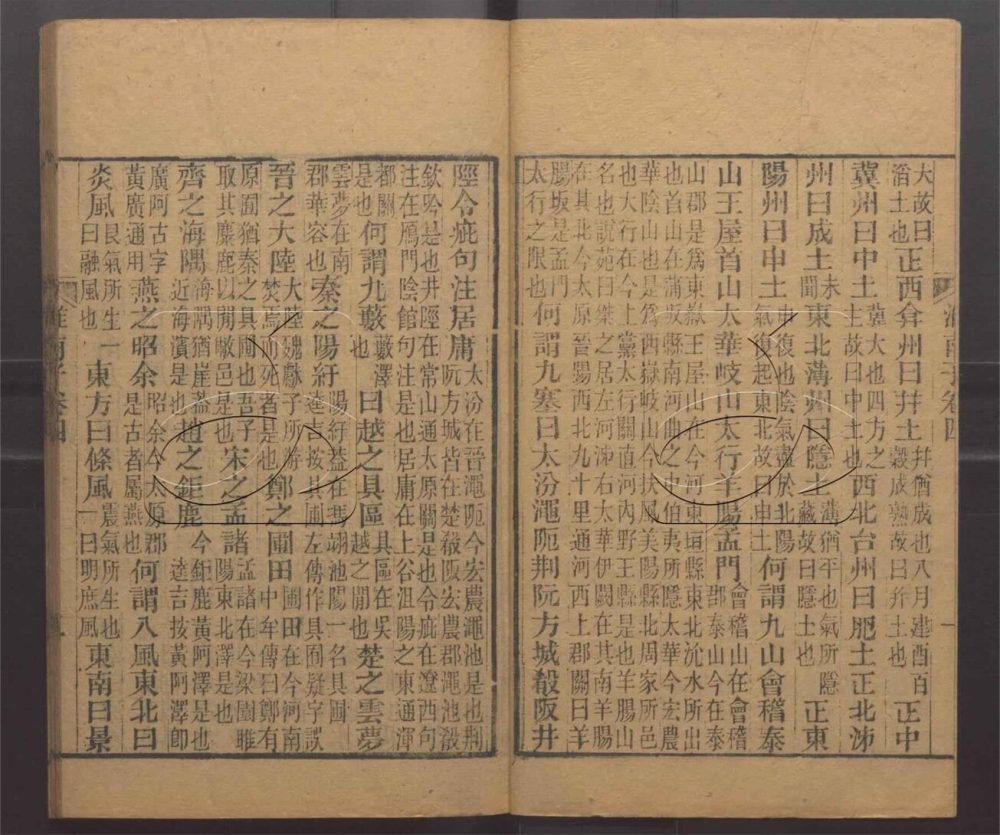 大故曰滔土也正西弇州曰幷土幷猶成也八月建酉百穀成熟故曰幷土也正中
冀州曰中土冀大也四方之主故曰中土也西北台州曰肥土正北泲
州曰成土未聞東北薄州曰隱土薄猶平也氣所隱藏故曰隱土也正東
陽州曰申土申復也陰氣盡於北陽氣復起東北故曰申土何謂九山會稽泰
山王屋首山太華岐山太行羊腸孟門會稽山在會稽郡泰山今在泰
山郡是爲東嶽王屋山在今河東垣縣東北沇水所出
也首山在蒲坂縣南河曲之中伯夷所隱太華今宏農
華陰山也是爲西嶽岐山今扶風美陽縣北周家所邑
也太行在今上黨太行關直河內野王縣是也羊腸山
名也說苑曰桀之居左河泲右太華伊闕在其南羊腸
在其北今太原晉陽西北九十里通河西上郡關曰羊
腸坂是孟門太行之限也何謂九塞曰太汾澠阨荆阮方城殽阪井
陘令疵句注居庸太汾在晉澠阨今宏農澠池是也荆阮方城皆在楚殽阪宏農郡澠池殽
欽吟是也井陘在常山通太原關是也令疵在遼西句
注在鴈門陰館句注是也居庸在上谷沮陽之東通渾
都關是也何謂九藪藪澤也曰越之具區具區在吳越之閒也楚之雲夢
雲夢在南郡華容也秦之陽紆陽紆蓋在馮翊池陽一名具圃逵吉按具圃左傳作具囿疑字誤
晉之大陸大陸魏獻子所游焚焉而死者是也鄭之圃田圃田在今河南中牟傳曰鄭有
原圃猶秦之具圃也吾子取其麋鹿以閒敝邑是也宋之孟諸孟諸在今梁國睢陽東北澤是也
齊之海隅海隅猶崖蓋近海濱是也趙之鉅鹿今鉅鹿黃阿澤是也逵吉按黃阿澤卽
廣阿古字黃廣通用燕之昭余昭余今太原郡是古者屬燕也何謂八風東北曰
炎風艮氣所生一曰融風也東方曰條風震氣所生也一曰明庶風東南曰景
淮南子卷四